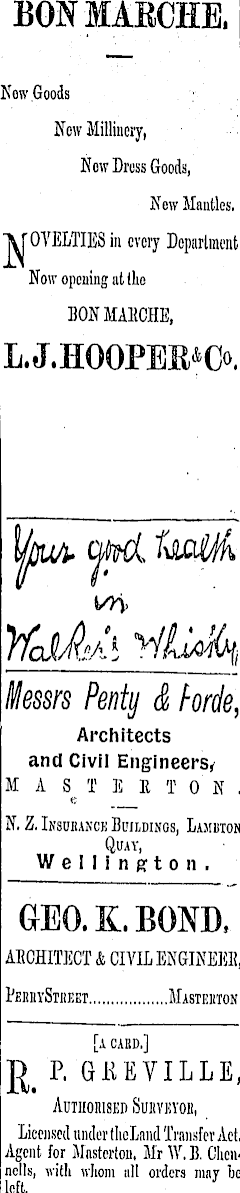 BON MARCHE.
New Goods
New Millinery,
New Dress Goods,
New Mantles.
NOVELTIES in every Department
Now opening at the
BON MARCHE,
L.J.HOOPER & Co.
Your good health
in
Walker's Whisky,
Messrs Penty & Forde,
Architects
and Civil Engineers,
MASTERTON.
N. Z. INSURANCE BUILDINGS, LAMBTON
QUAY,
Wellington.
GEO. K. BOND,
ARCHITECT & CIVIL ENGINEER,
PERRY STREET..................MASTERTON
[A CARD.]
R. P. GREVILLE,
AUTHORISED SURVEYOR,
Licensed under the Land Transfer Act.
Agent for Masterton, Mr W. B. Chen-
nells, with whom all orders may be
left.